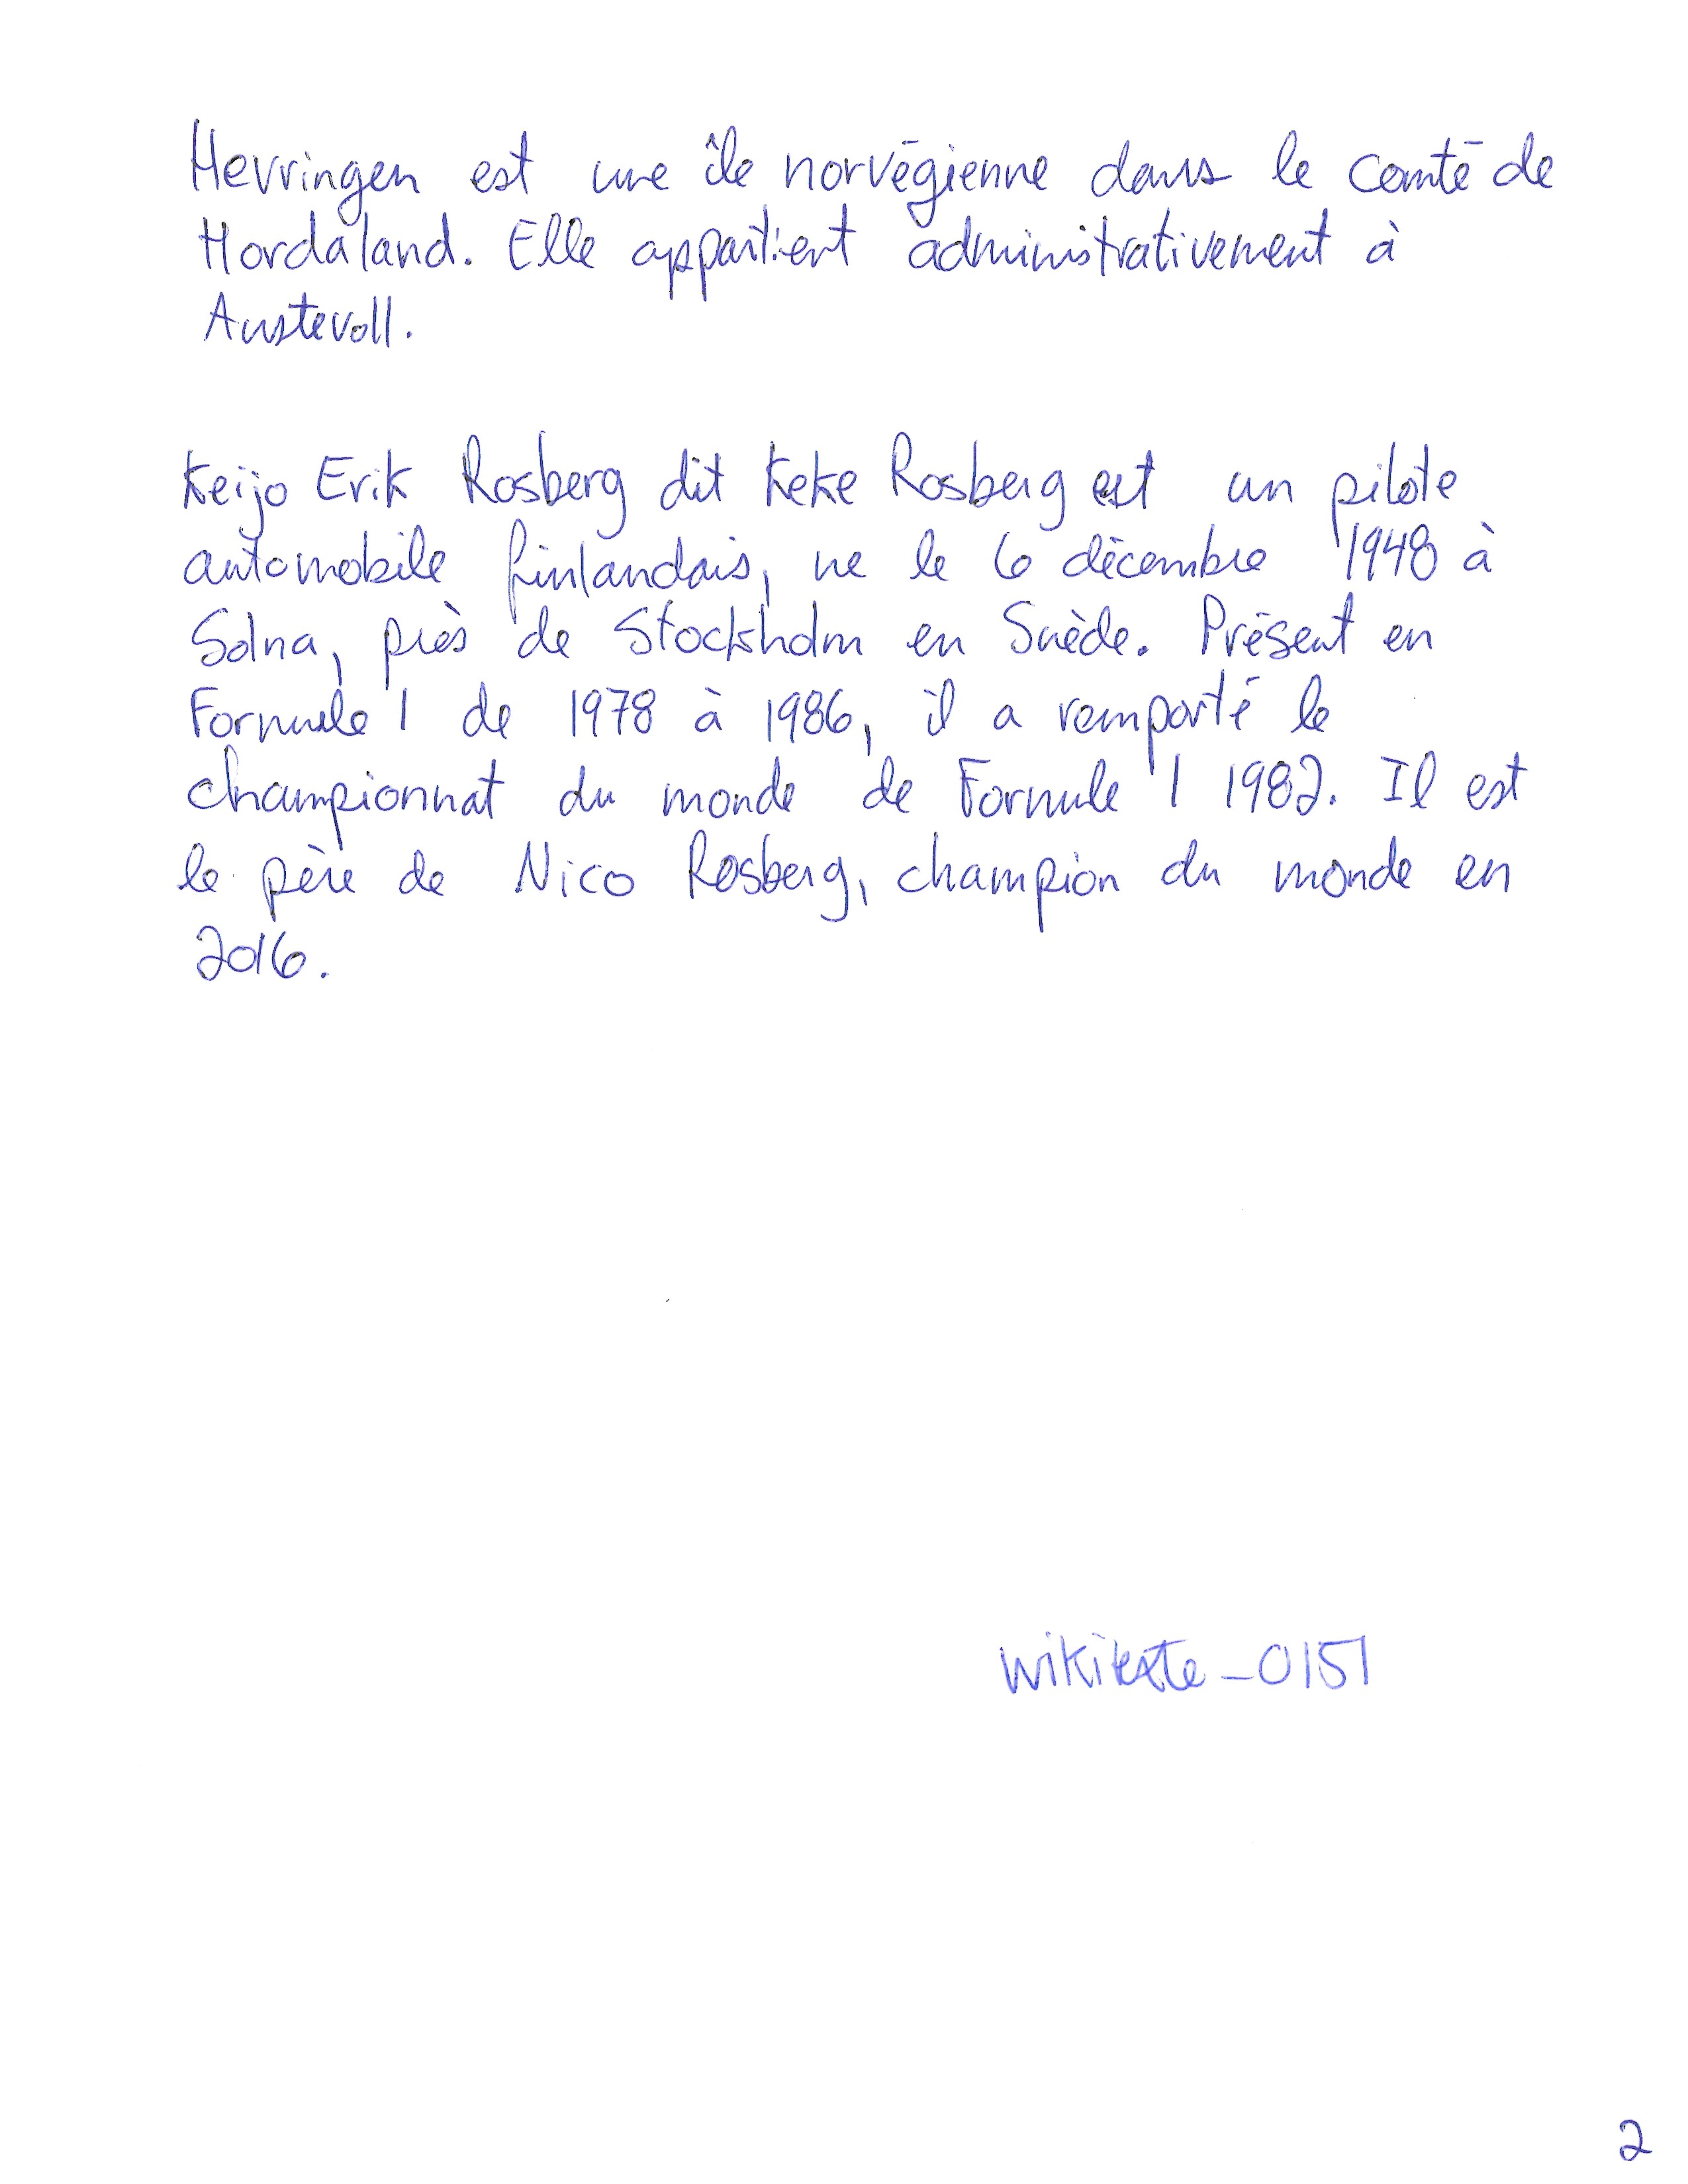 Hevringen est une île norvégienne dans le comté de
Hordaland. Elle appartient administrativement à
Austevoll.
Keijo Erik Rosberg dit Keke Rosberg est un pilote
automobile finlandais, ne le 6 décembre 1948 à
Solna, près de Stockholm en Suède. Présent en
Formule 1 de 1978 à 1986, il a remporté le
championnat du monde de Formule 1 1982. Il est
le père de Nico Rosberg, champion du monde en
2016.
wikitexte_0151
2